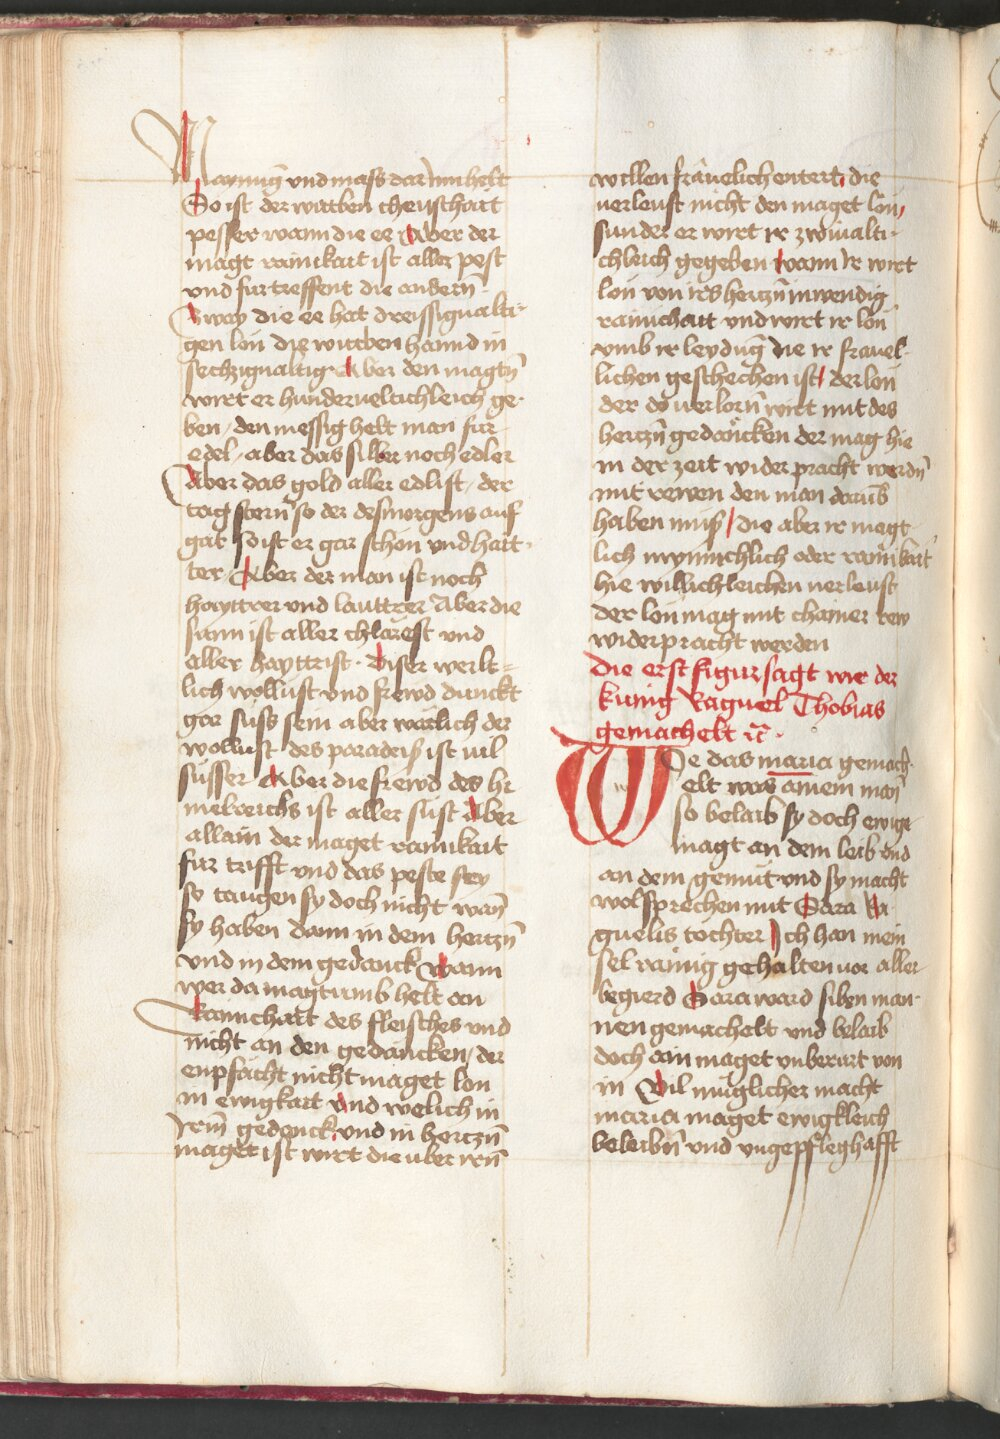 Maynūg vnd mass dar jnn helt
So ist der witben cheuschait
pesser wann die ee Aber der
magt rainikait ist aller pest
vnd furtreffent die andern̄
Zway die ee hat dreissigualti-
gen lon die witben hannd in
sechzigualtig Aber den magtn̄
wirt er hunderueltichleich ge-
ben / den messig helt man fur
edel / aber das silber noch edler
Aber das gold aller edlist / der
tag stern so der des morgens auf
gat so ist er gar schon vnd hait-
ter / Aber der man ist noch
hayttrer vnd lauttrer Aber die
sunn ist aller chlarest vnd
aller hayttrist · Diser werlt-
lich wollust vnd frewd dunckt
gar suss sein aber warlich der
wollust des paradeis ist uil
susser Aber die frewd des hi
melreichs ist aller sust Aber
allain der maget rainikait
fur trifft vnd das peste sey
so taugen sy doch nicht wan̄
sy haben dann in dem hertzn̄
vnd in dem gedanck wann
wer da magtumb helt an
Rainchait des fleisches vnd
nicht an den gedancken / der
enpfacht nicht maget lon
in ewigkait vnd welich in
Jrm̄ gedenck vnd in hertzn̄
maget ist wirt die uber irn̄
willen frauelich entert / die
uerleust nicht den maget lon /
sunder er wirt ir zwiualti-
chleich gegeben wann ir wirt
lon von irs hertzn̄ inwendig
rainichait vnd wirt ir lon
vmb ir leydūg die ir frauel-
lichen geschechen ist / der lon
der do uerlorn̄ wirt mit des
hertzn̄ gedancken der mag hie
in der zeit wider pracht werdn̄
mit rewen den man darūb
haben muss / die aber ir megt-
lich mynnichlich oder rainikait
hie willichleichen uerleust
der lon mag mit chainer rew
widerpracht werden
Die erst figur sagt wie der
kunig Raguel Thobias
gemachelt ꝛc̄ ·
WIe das maria gemach-
elt was ainem man̄
so belaib sy doch ewige
magt an dem leib vnd
an dem gemut vnd sy macht
wol sprechen mit Sara Ra-
guelis tochter Ich han mein
sel rainig gehalten uor aller
begierd Sara ward siben man-
nen gemachelt vnd belaib
doch ain maget vnberurt von
in Vil muglicher macht
maria maget ewigkleich
beleibn̄ vnd vngepfleghafft